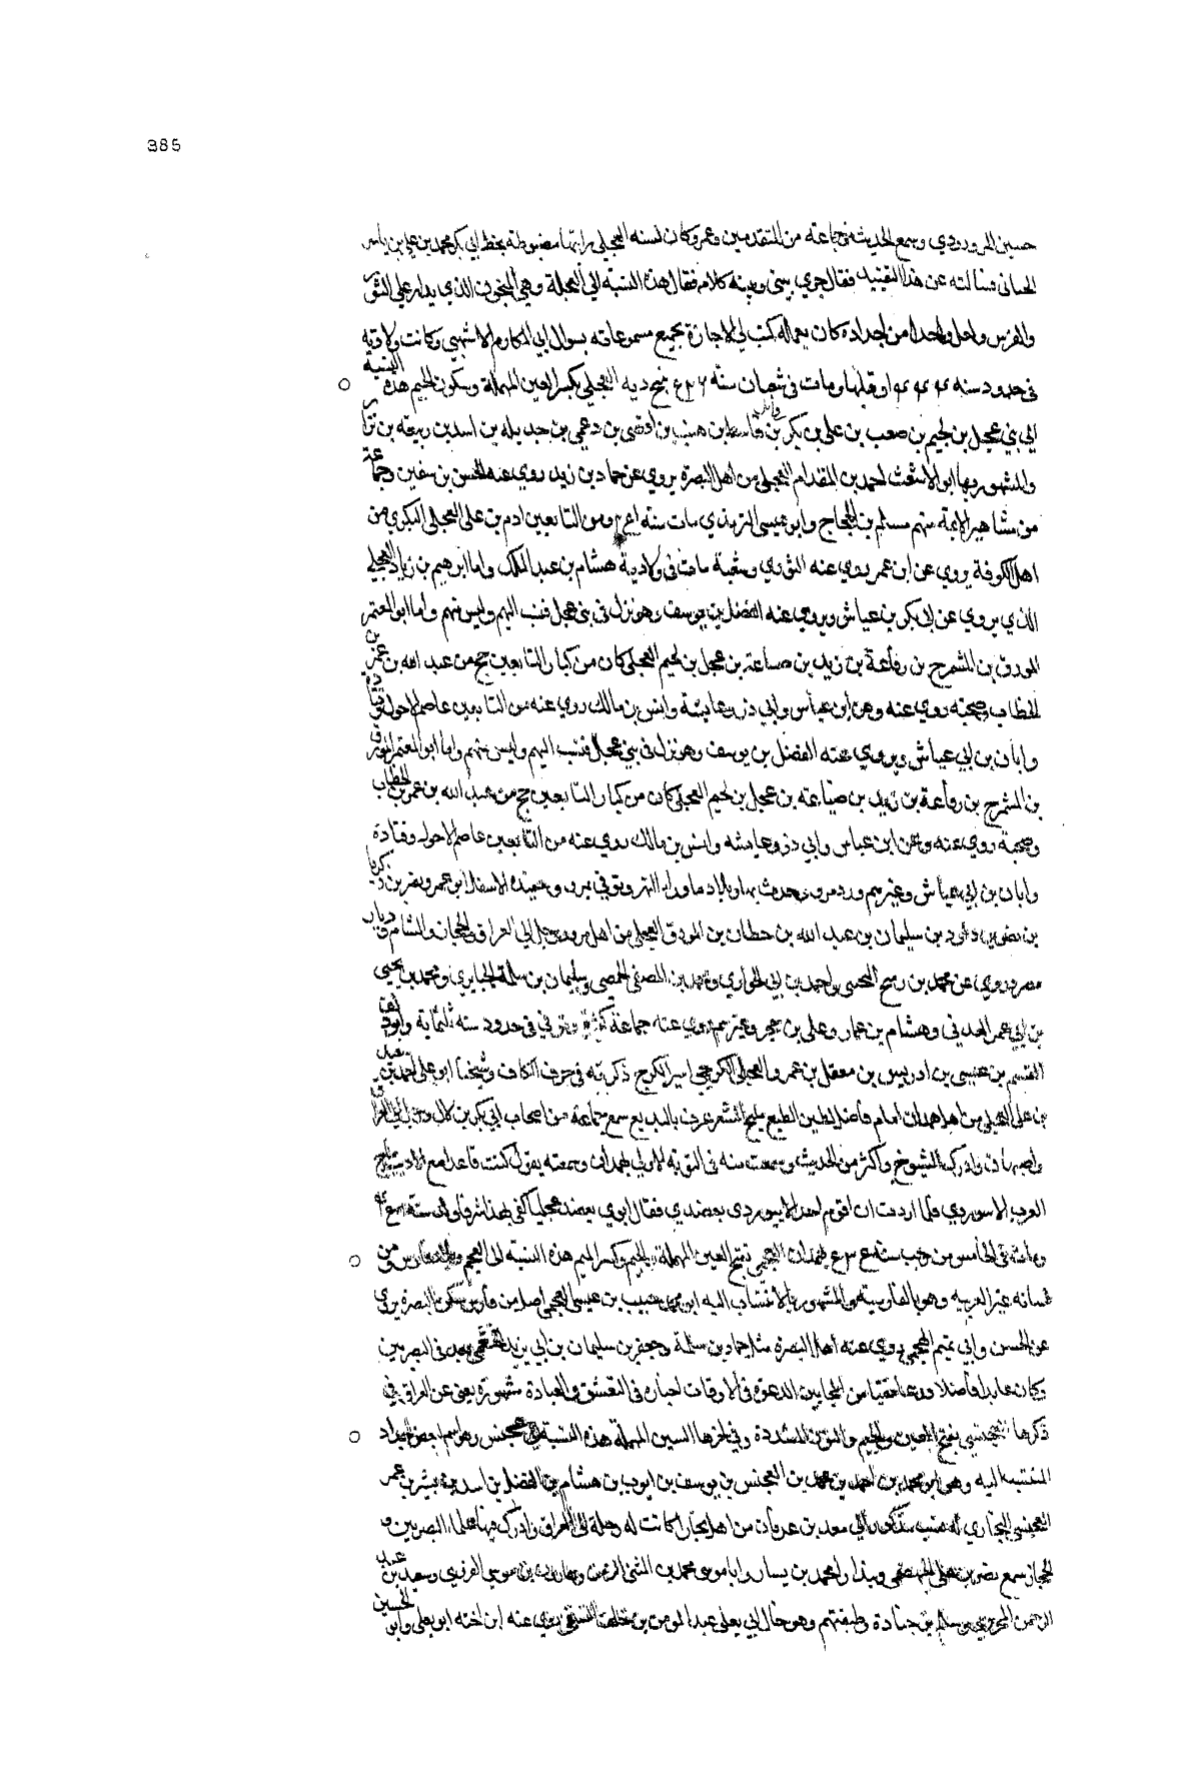 385
حسين المروروذي وسمع الحديث من جماعة من المتقدمين وعمر وكان نسبه العجلي رايتها مضبوطة بخط ابي بكر محمد بن علي بن ياسر
الجياني وسالته عن هذا التقييد فقال جري بيني وبينه كلام فقال هذه النسبة الي العجلة وهي المنجنون الذي يدار علي الثور
والفرس ولعل واحدا من اجداده كان يعمله كتب لي الاجازة بجميع مسموعاته بسوال ابي المكارم الاشهبي وكانت ولادته
في حدود سنة او قبلها ومات في شعبان سنة بنج ديه العجلي بكسر العين المهملة وسكون الجيم هذه النسبة
الي بني عجل بن لجيم بن صعب بن علي بن بكر بن وائل بن قاسط بن هنب بن افصى بن دعمي بن جديلة بن اسد بن ربيعة بن نزار
والمشهور بها ابو الاشعث احمد بن المقدام العجلي من اهل البصرة يروي عن حماد بن زيد روي عنه الحسن بن سفين وجماعة
من مشاهير الايمة منهم مسلم بن الحجاج وابو عيسى الترمذي مات سنة ومن التابعين ادم بن علي العجلي البكري من
اهل الكوفة يروي عن ابن عمر روي عنه الثوري وشعبة مات في ولاية هشام بن عبد الملك واما ابرهيم بن زياد العجلي
الذي يروي عن ابي بكر بن عياش ويروي عنه الفضل بن يوسف وهو نزل في بني عجل فنسب اليهم وليس منهم واما ابو المعتمر
المورق بن المشمرج بن رفاعة بن زيد بن صباعة بن عجل بن لجيم العجلي كان من كبار التابعين حج من عبد الله بن عمر بن
الخطاب وصحبه روي عنه وعن ابن عباس وابي ذر وعايشة وانس بن مالك روي عنه من التابعين عاصم الاحول وقتادة
وابان بن ابي عياش ويروي عنه الفضل بن يوسف وهو نزل في بني عجل فنسب اليهم وليس منهم واما ابو المعتمر المورق
بن المشمرج بن رفاعة بن زيد بن صباعة بن عجل بن لجيم العجلي كان من كبار التابعين حج من عبد الله بن عمر بن الخطاب
وصحبة روي عنه وعن ابن عباس وابي ذر وعايشه وانس بن مالك روي عنه من التابعين عاصم الاحول وقتادة
وابان بن ابي عياش وغيرهم ورد مرو وحدث بها وببلاد ماوراء النهر وتوفي بمرو وحفيده الاسفل ابو عمرو نصر بن زكريا
بن نصر بن داود بن سليمان بن عبد الله بن حطان بن المورق العجلي من اهل مرو رحل الي العراق والحجاز والشام وديار
مصر وروي عن محمد بن رمح واحمد بن ابي الحواري ومحمد بن المصفي الحمصي وسليمان بن سلمة الجبايري ومحمد بن يحيى
بن ابي عمر العدني وهشام بن عمار وعلي بن حجر وغيرهم روي عنه جماعة كثيرة وتوفي في حدود سنة ثلثماية وابو دلف
القسم بن عيسى بن ادريس بن معقل بن عمرو العجلي الكرجي امير الكرج ذكرته في حرف الكاف وشيخنا ابو علي احمد بن سعد
بن علي العجلي من اهل همدان امام فاضل لطيف الطبع مليح الشعر عرف بالبديع سمع جماعة من اصحاب ابي بكر بن لال ورحل الي العراق
واصبهان وادرك الشيوخ واكثر من الحديث وسمعت منه في النوبة الاولي بهمدان وسمعته يقول كنت قاعدا مع الاديب
ومات في الخامس من رجب سنة بهمدان العجمي بفتح العين المهملة والجيم وكسر الميم هذه النسبة الي العجم وبلاد فارس من
لسانه غير العربيه وهو بالفارسية والمشهور بالانتساب اليه ابو محمد حبيب بن عيسى العجمي اصله من فارس سكن البصرة يروي
عن الحسن وابي تميم الهجيمي روي عنه اهل البصرة مثل حماد بن سلمة وجعفر بن سليمان بن ابي يزيد
وكان عابدا فاضلا ورعا تقيا من المجابين الدعوة في الاوقات اخباره في التقشف والعبادة مشهورة يغني عن الاغراق في
ذكرها العجنسي بفتح العين والجيم والنون المشددة وفي اخرها السين المهملة هذه النسبة الي عجنس وهو اسم لبعض اجداد
المنتسب اليه وهو ابو محمد بن احمد بن محمد بن العجنس بن يوسف بن ايوب بن هشام بن الفضل بن اسد بن بشير بن عمر
العجنسي البخاري له نسب مذكور الي معد بن عدنان من اهل بخارا كانت له رحلة الي العراق وادرك فيها علماء البصريين و
الحجاز سمع نصر بن علي الجهضمي وبندار محمد بن يسار وابا موسى محمد بن المثنى الزمن وهارون بن موسى الفروي وسعيد بن عبد
الرحمن المخزومي وسلم بن جنادة وطبقتهم وهو خال ابي يعلى عبد المومن بن خلف النسفي روي عنه ابن اخته ابو يعلى وابو الحسين